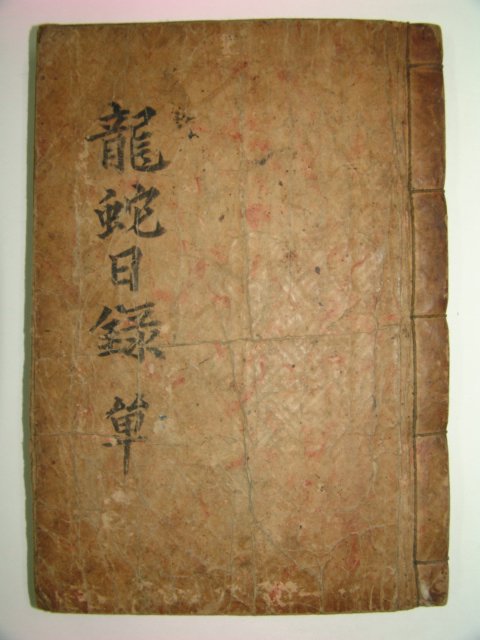 龍蛇日録 單